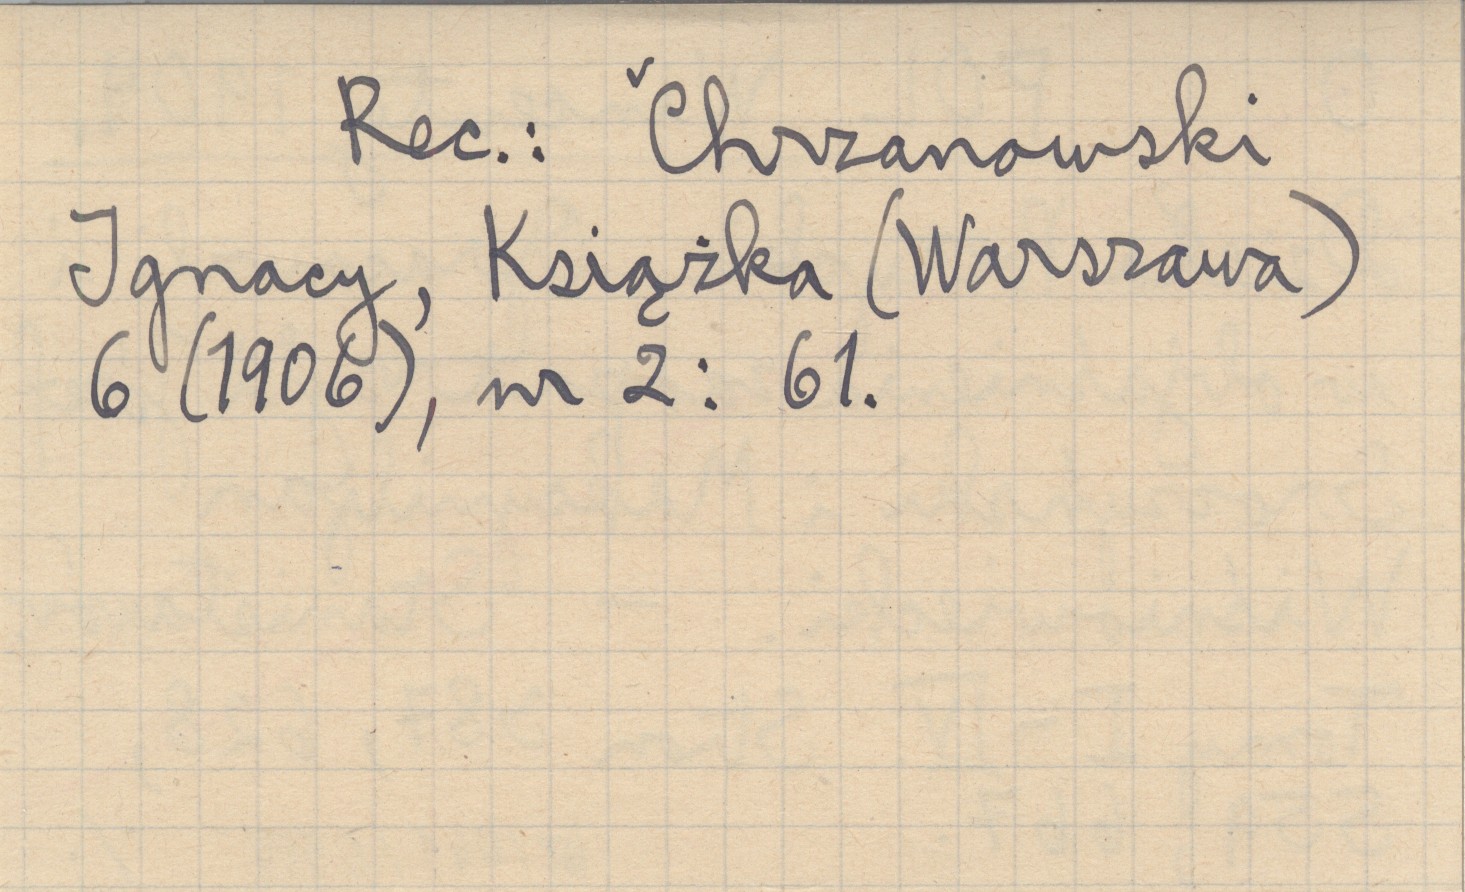 Rec.: ˇChrzanowski
Ignacy, Książka (Warszawa)
6 (1906), nr 2: 61.